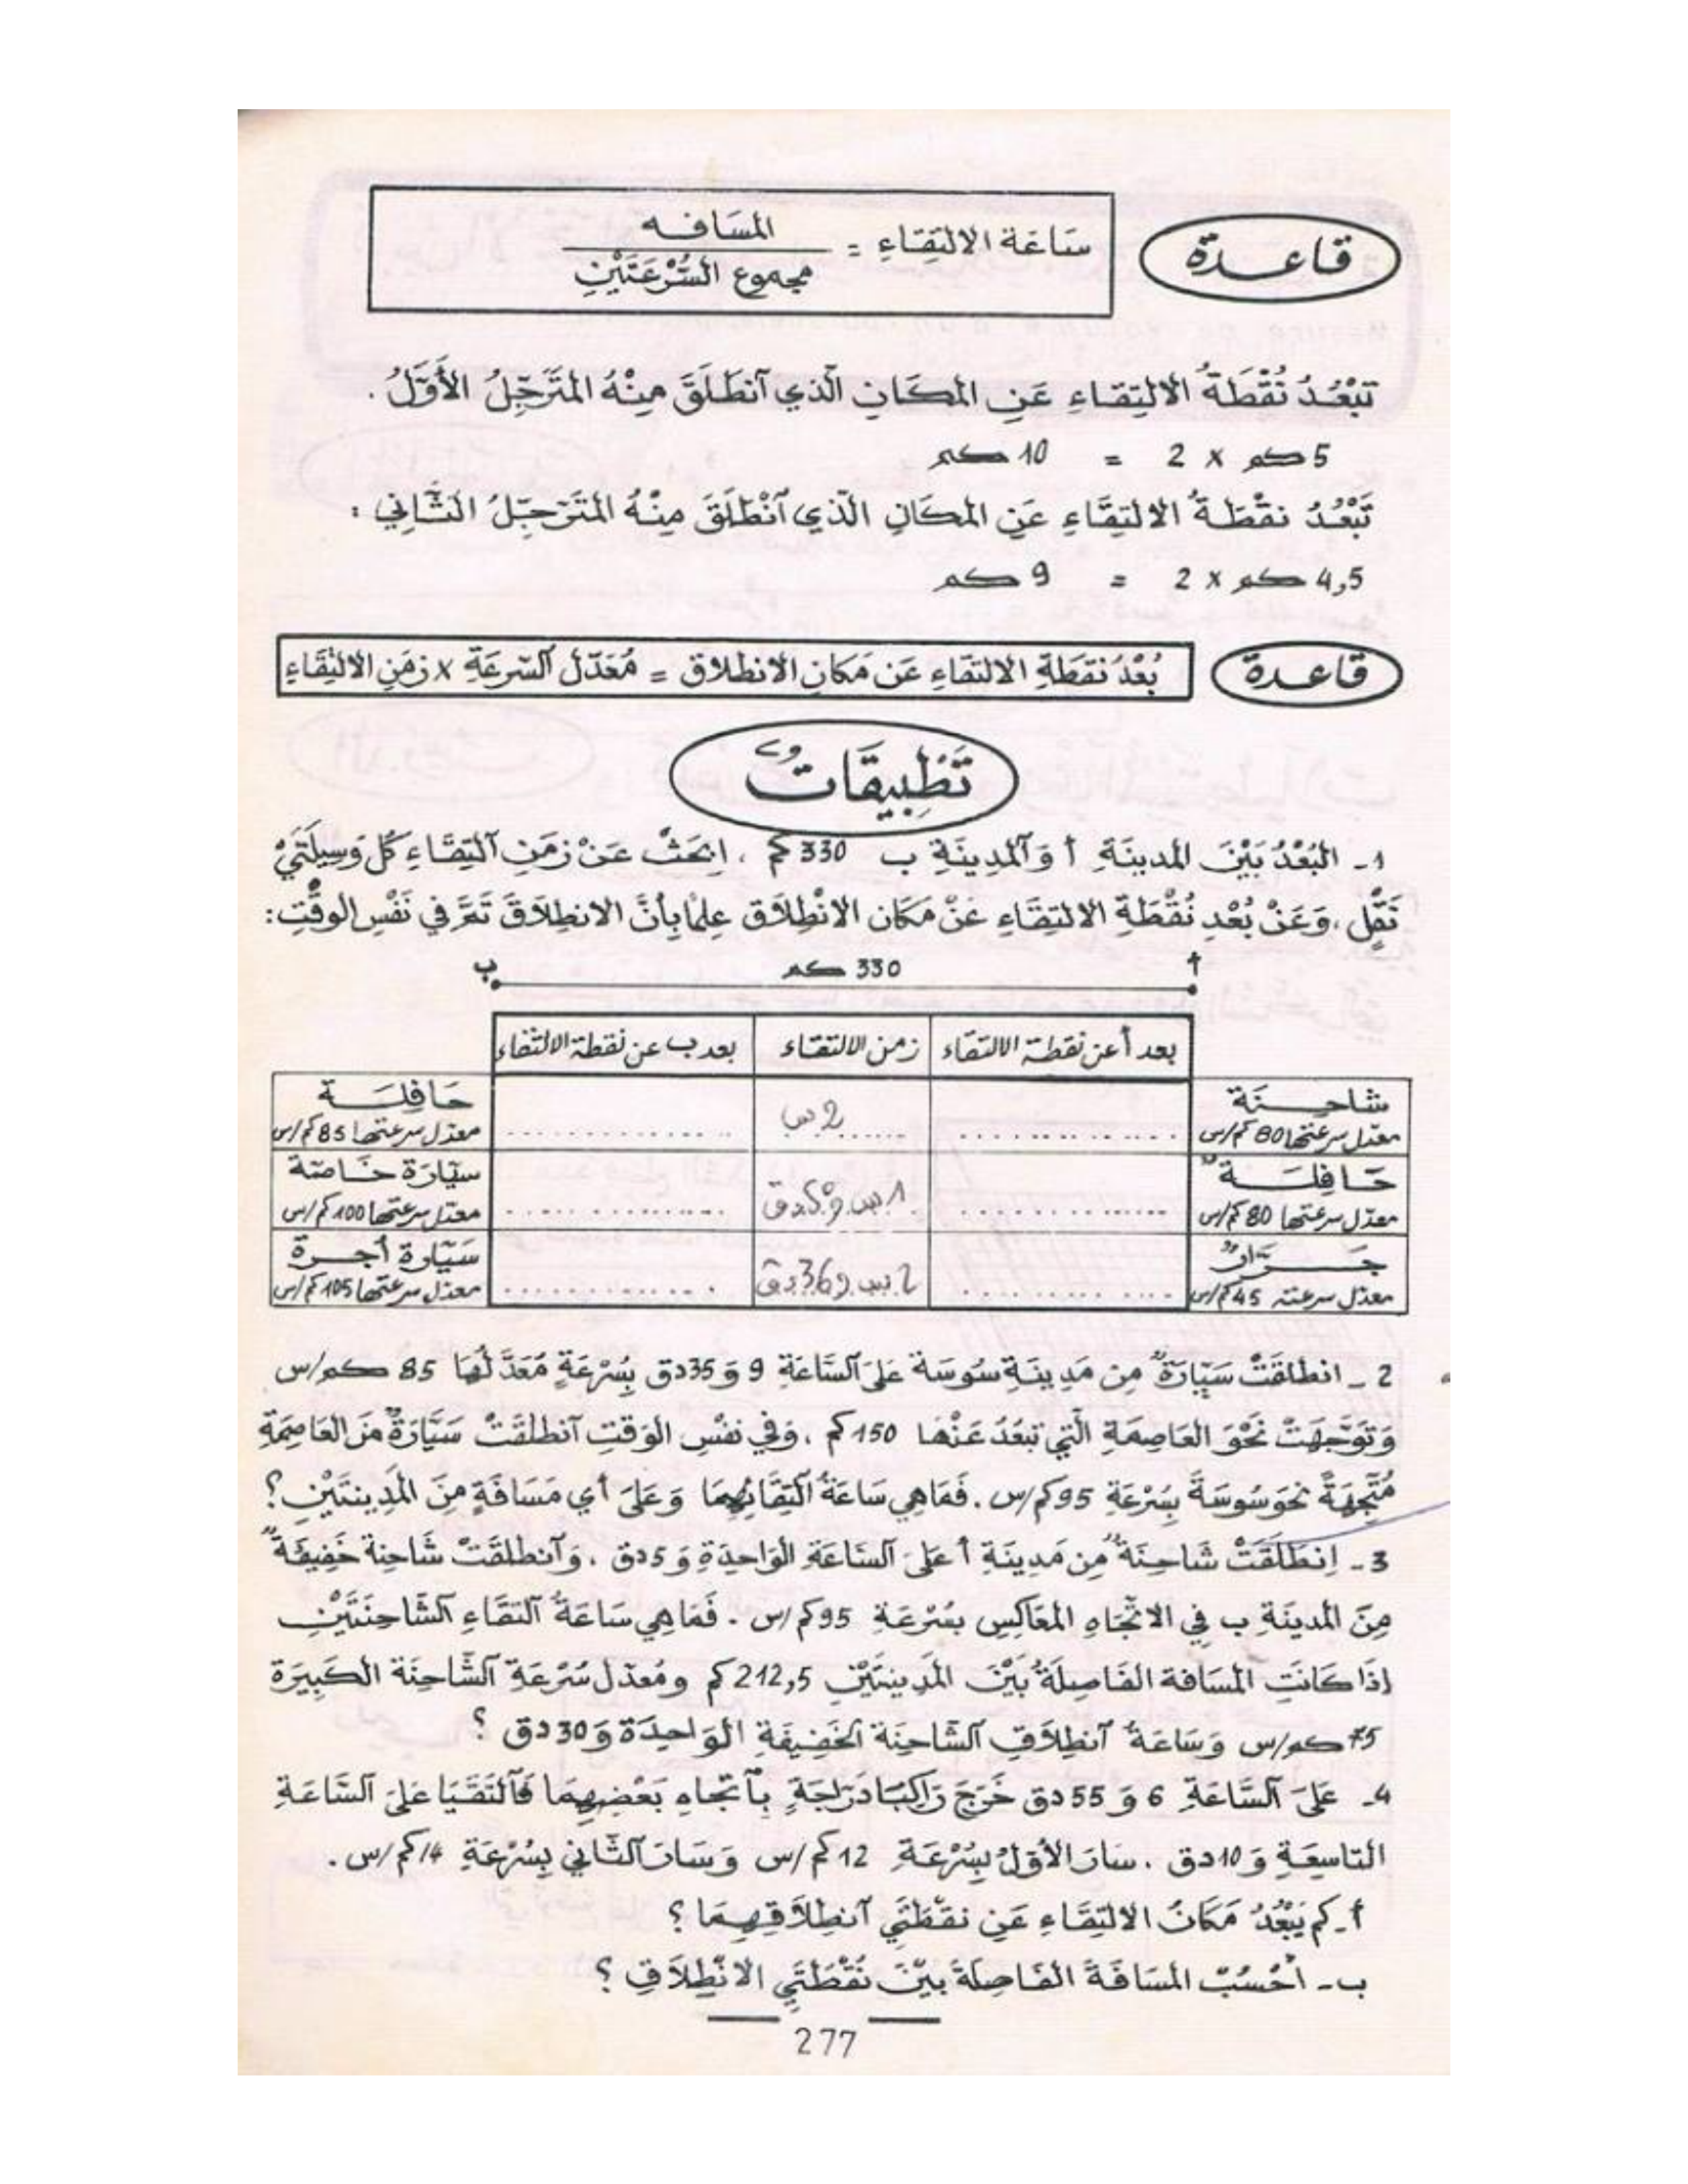 قاعدة
ساعة الالتِقاءِ = المسَافه / مجموع السُّرْعَتَيْنِ
تَبْعُدُ نُقْطَةُ الالتِقاءِ عَنِ المكَانِ الّذي آنطَلَقَ مِنْهُ المُتَرَجِّلُ الأَوَّلُ .
5كم x 2 = 10كم
تَبْعُدُ نقْطَةُ الالتِقَاءِ عَنِ المكَانِ الّذي آنْطَلَقَ مِنْهُ المُتَرَجِّلُ الثَّانِي :
4,5 كم x 2 = 9 كم
قاعدة
بُعْدُ نقطَةِ الالتقَاءِ عَن مكَانِ الانطلاق = مُعَدّل السّرعَةِ x زمَنِ الالتِقَاءِ
تَطْبِيقَاتٌ
1 ـ البُعْدُ بَيْنَ المدينَةِ أ وَآلمدِينَةِ ب 330 كم . ابْحَثْ عَنْ زمَنِ آلتِقَاءِ كُل وَسِيلَتَيْ
نَقْلٍ ، وَعَنْ بُعْدِ نُقْطَةِ الالتِقَاءِ عَنْ مَكَان الانْطِلاَق عِلمًا بِأنَّ الانطِلاَقَ تَمَّ في نَفْسِ الوقْتِ :
أ 330 كم ب
بعد أ عن نقطة الالتقاء زمن الالتقاء بعد ب عن نقطة الالتقاء
شاحِنَة .............. 2 س .............. حَافِلَة
معدّل سرعتها 80 كم/س معدّل سرعتها 85 كم/س
حَافِلَةٌ .............. 1 س و 5 دق .............. سيّارَة خَاصّة
معدّل سرعتها 80 كم/س معدّل سرعتها 100 كم/س
جَرَّارٌ .............. 2 س و 36 دق .............. سَيّارة أجرة
معدّل سرعته 45 كم/س معدّل سرعتها 105 كم/س
2 ـ انطلقَتْ سَيّارَةٌ مِن مَدِينَةِ سُوسَة عَلَى آلسَّاعَةِ 9 وَ 35 دق بِسُرْعَةٍ مُعَدَّلُهَا 85 كم/س
وَتَوَجَّهَتْ نَحْوَ العَاصِمَةِ الَّتِي تَبْعُدُ عَنْهَا 150 كم . وَفِي نفْسِ الوَقتِ آنطلَقَتْ سَيَّارَةٌ مِنَ العَاصِمَةِ
مُتَّجِهَةً نحوَ سُوسَةَ بِسُرْعَةِ 95 كم/س . فَمَا هِي سَاعَةُ آلتِقَائِهِمَا وَعَلَى أي مَسَافَةٍ مِنَ المَدِينتَيْنِ ؟
3 ـ اِنطَلَقَتْ شَاحِنَةٌ مِن مَدِينَةِ أ عَلَى آلسَّاعَةِ الوَاحِدَةِ وَ 5 دق . وَآنطلقَتْ شَاحِنة خَفِيفَةٌ
مِنَ المدينَةِ ب فِي الاتّجَاهِ المعَاكِسِ بسُرْعَةِ 95 كم/س . فَمَا هِي سَاعَةُ آلتقَاءِ آلشَّاحِنَتَيْنِ
إذَا كَانَتِ المسَافة الفَاصِلَةُ بَيْنَ المَدِينَتَيْنِ 212,5 كم ومُعدّل سُرْعَةِ آلشَّاحِنَة الكَبِيرَة
75 كم/س وَسَاعَةُ آنطِلاَقِ آلشَّاحِنَة الخَفِيفَةِ الوَاحِدَة وَ 30 دق ؟
4 ـ عَلَى آلسَّاعَةِ 6 وَ 55 دق خَرَجَ رَاكِبَا دَرّاجَةٍ بِآتجَاهِ بَعْضِهِمَا فَآلتَقَيَا عَلَى آلسَّاعَةِ
التاسِعَةِ وَ 10 دق . سَارَ الأوّلُ بِسُرْعَةِ 12 كم/س وَسَارَ آلثَّاني بِسُرْعَةِ 14 كم/س .
أ ـ كم يَبْعُدُ مَكَانُ الالتِقَاءِ عَنِ نقْطَتَيِ آنطِلاَقِهِمَا ؟
ب ـ اُحْسُبْ المسَافَةَ الفَاصِلَةَ بيْنَ نُقْطَتَيِ الانْطِلاَقِ ؟
277